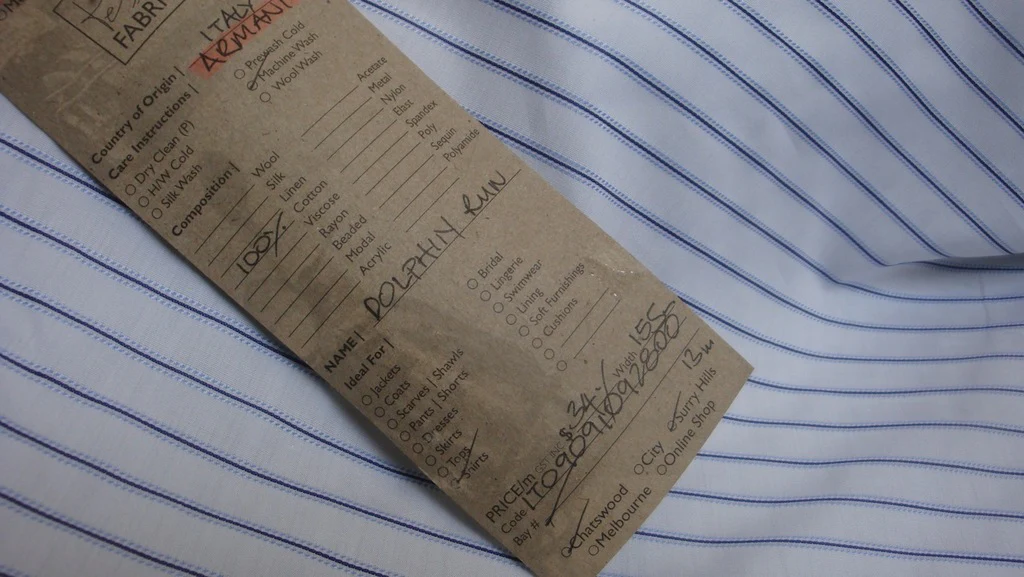 FABRI
Country of Origin | ITALY
ARMANI
Care Instructions |
Dry Clean (P)
H/W Cold
Silk Wash
Prewash Cold
Machine Wash
Wool Wash
Composition |
Wool
Silk
Linen
100% Cotton
Viscose
Rayon
Beaded
Modal
Acrylic
Acetate
Metal
Nylon
Elast
Spandex
Poly
Sequin
Polyamide
NAME | DOLPHIN RUN
Ideal For |
Jackets
Coats
Scarves | Shawls
Pants | Shorts
Dresses
Skirts
Tops
Shirts
Bridal
Lingerie
Swimwear
Lining
Soft Furnishings
Cushions
PRICE/m GST INC $34.- Width 155
Code
Bay #
13m
Chatswood
City
Surry Hills
Melbourne
Online Shop